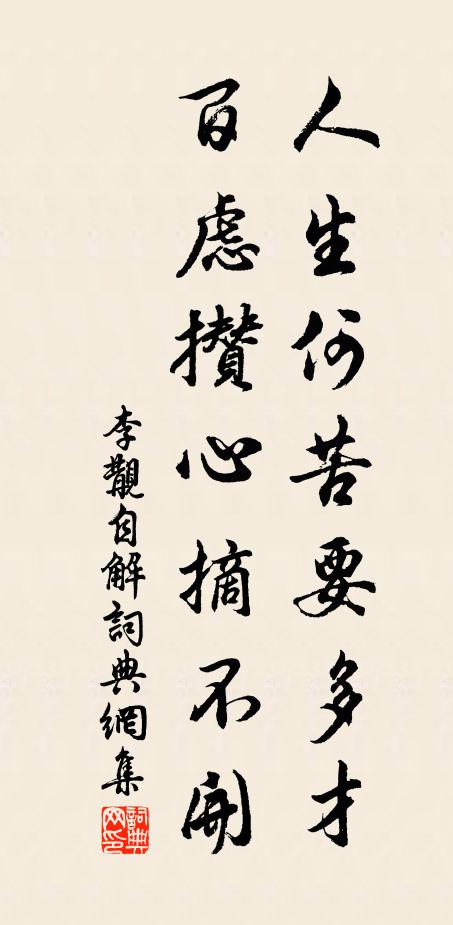 人生何苦要多才
百慮攢心摘不開
李覯自解詞典網集
詞典网印